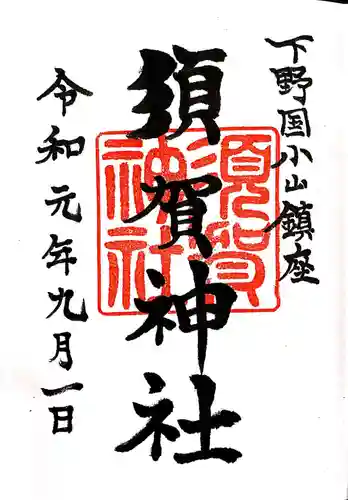 下野国小山鎮座
須賀神社
令和元年九月一日
須賀神社